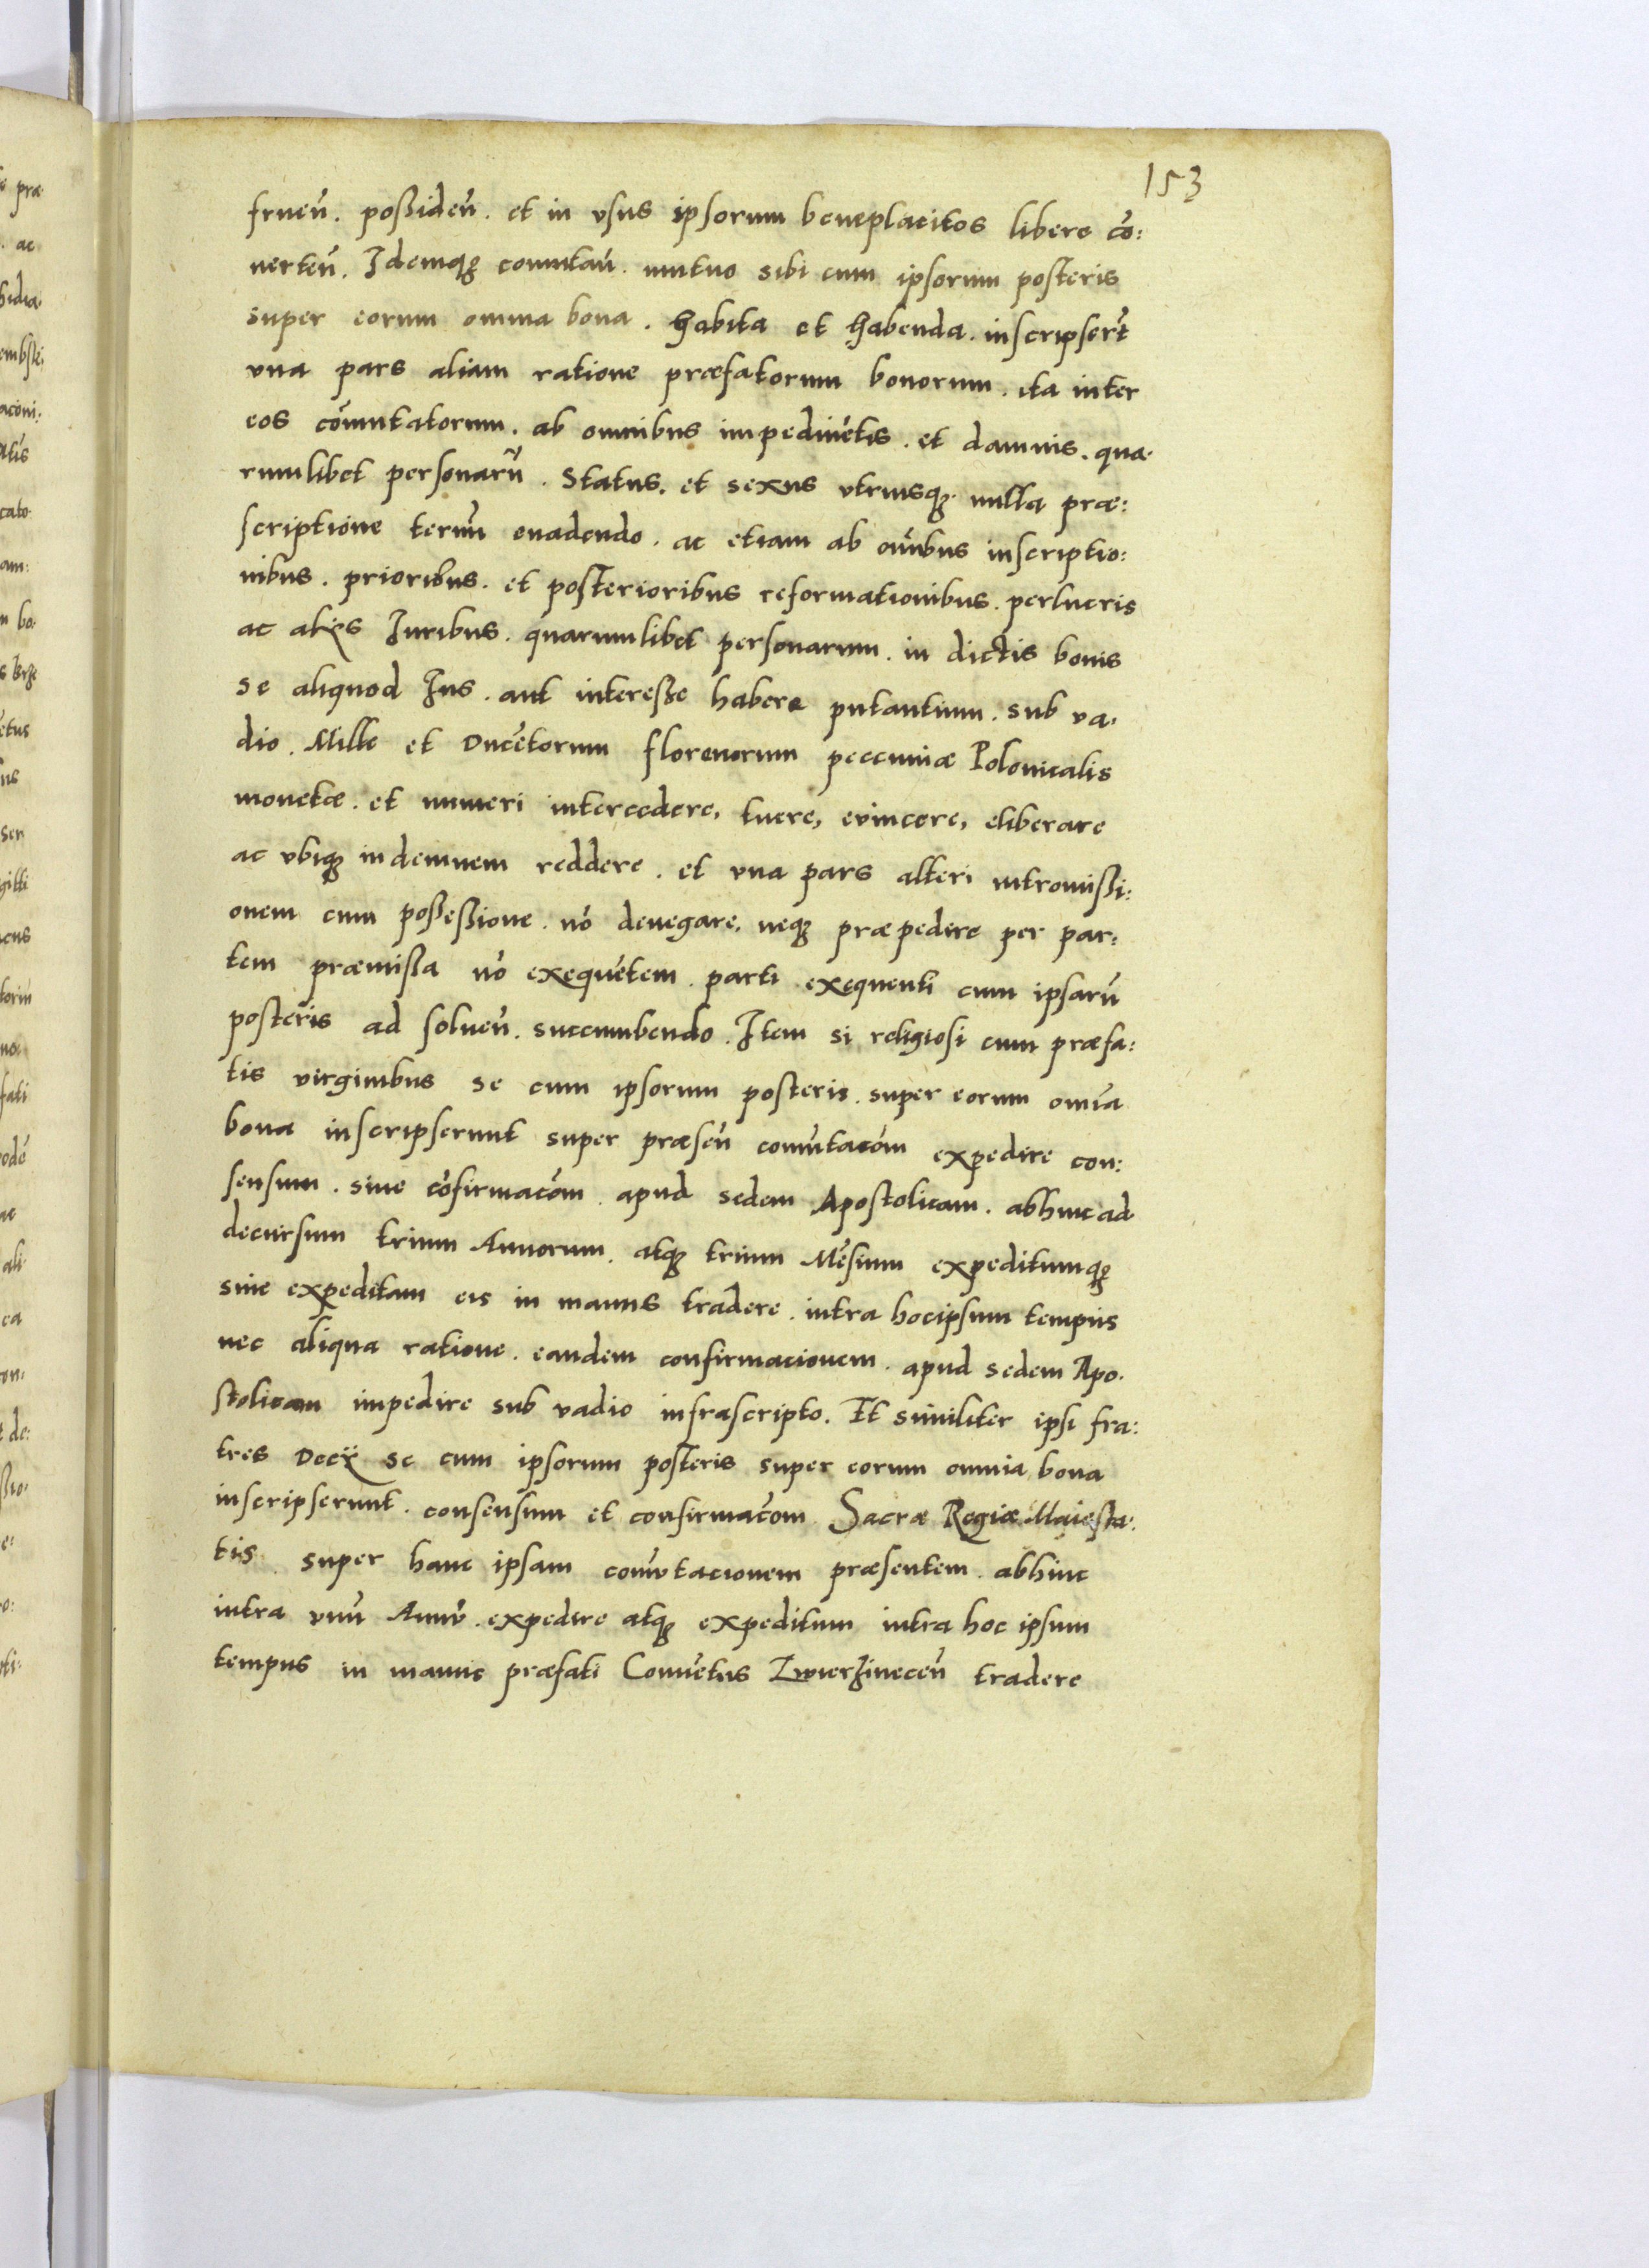 153
fruen̄. poßiden̄. et in vsus ipsorum beneplacitos libere cō:
uerten̄. Idemqꝫ comutan̄. mutuo sibi cum ipsorum posteris
super eorum omnia bona. habita et habenda. inscripser̄t
vna pars aliam ratione præfatorum bonorum. ita inter
eos cōmutatorum. ab omnibus impedimētis. et damnis. qua
rumlibet personarū. Status. et sexus vtriusqꝫ. nulla præ:
scriptione terrarū euadendo. ac etiam ab oībus inscriptio:
nibus. prioribus. et posterioribus reformationibus. perlucris
ac alijs Iuribus. quarumlibet personarum. in dictis bonis
se aliquod Ius. aut intereße habere putantium. sub va.
dio. Mille et Ducētorum florenorum peccuniæ Polonicalis
monetæ. et numeri intercedere, tuere, euincere, eliberare
ac vbiqꝫ indemnem reddere. et vna pars alteri intromißi:
onem cum poßeßione. nō denegare, neqꝫ præpedire per par:
tem præmißa nō exequētem. parti exequenti cum ipsarū
posteris ad soluen̄. succumbendo. Item si religiosi cum præfa:
tis virginibus se cum ipsorum posteris. super eorum omīa
bona inscripserunt super præsen̄ comutacōm expedire con:
sensum. siue cōfirmacōm. apud sedem Apostolicam. abhinc ad
decursum trium Annorum. atqꝫ trium Mēsium expeditumqꝫ
siue expeditam eis in manus tradere. intra hocipsum tempus
nec aliqua ratione. eandem confirmacionem. apud sedem Apo.
stolicam impedire sub vadio infrascripto. Et similiter ipsi fra:
tres Decij se cum ipsorum posteris super eorum omnia bona
inscripserunt. consensum et confirmacōm Sacræ Regiæ Maiesta:
tis. super hanc ipsam comutacionem præsentem. abhinc
intra vnū Annū. expedire atqꝫ expeditum intra hoc ipsum
tempus in manus præfati Conuētus Zwierzinecen̄ tradere